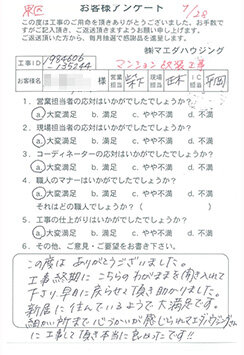 東区
お客様アンケート
9/28
この度は工事のご用命を頂きありがとうございました。お手数で
すがご記入頂き、ご返送頂きますようお願い申し上げます。
ご返送頂いた方から、毎月抽選で感謝品を進呈します。
㈱マエダハウジング
工事ID 184606 135244 マンション改装工事
お客様名 様 営業担当 工事担当 IC担当 平岡
1. 営業担当者の応対はいかがでしたでしょうか?
a.大変満足 b.満足 c.やや不満 d.不満
2. 現場担当者の応対はいかがでしたでしょうか?
a.大変満足 b.満足 c.やや不満 d.不満
3. コーディネーターの応対はいかがでしたでしょうか?
a.大変満足 b.満足 c.やや不満 d.不満
4. 職人のマナーはいかがでしたでしょうか?
a.大変満足 b.満足 c.やや不満 d.不満
それはどの職人でしょうか( )
5. 工事の仕上がりはいかがでしたでしょうか?
a.大変満足 b.満足 c.やや不満 d.不満
6. その他、ご意見・ご要望をお書き下さい。
この度は ありがとうございました。
工事終期に こちらのわがままを聞き入れて
下さり 早目に戻らせて頂き助かりました。
新居に住んでいるようで 大満足です。
細かい所まで心づかいが感じられ マエダハウジングさん
に工事して頂き本当に良かったです!!